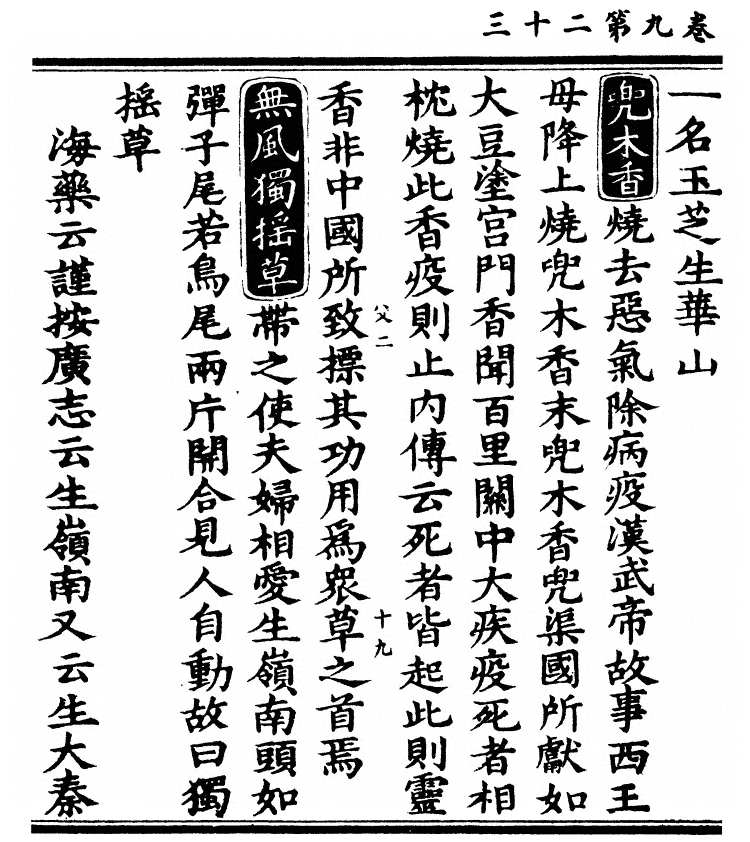 卷九第二十三
一名玉芝生華山
兜木香燒去惡氣除病疫漢武帝故事西王
母降上燒兜木香末兜木香兜渠國所獻如
大豆塗宫門香聞百里關中大疾疫死者相
枕燒此香疫則止内傳云死者皆起此則靈
香非中國所致標其功用爲衆草之首焉
父二
十九
無風獨摇草帶之使夫婦相愛生嶺南頭如
彈子尾若鳥尾兩片開合見人自動故曰獨
摇草
海藥云謹按廣志云生嶺南又云生大秦